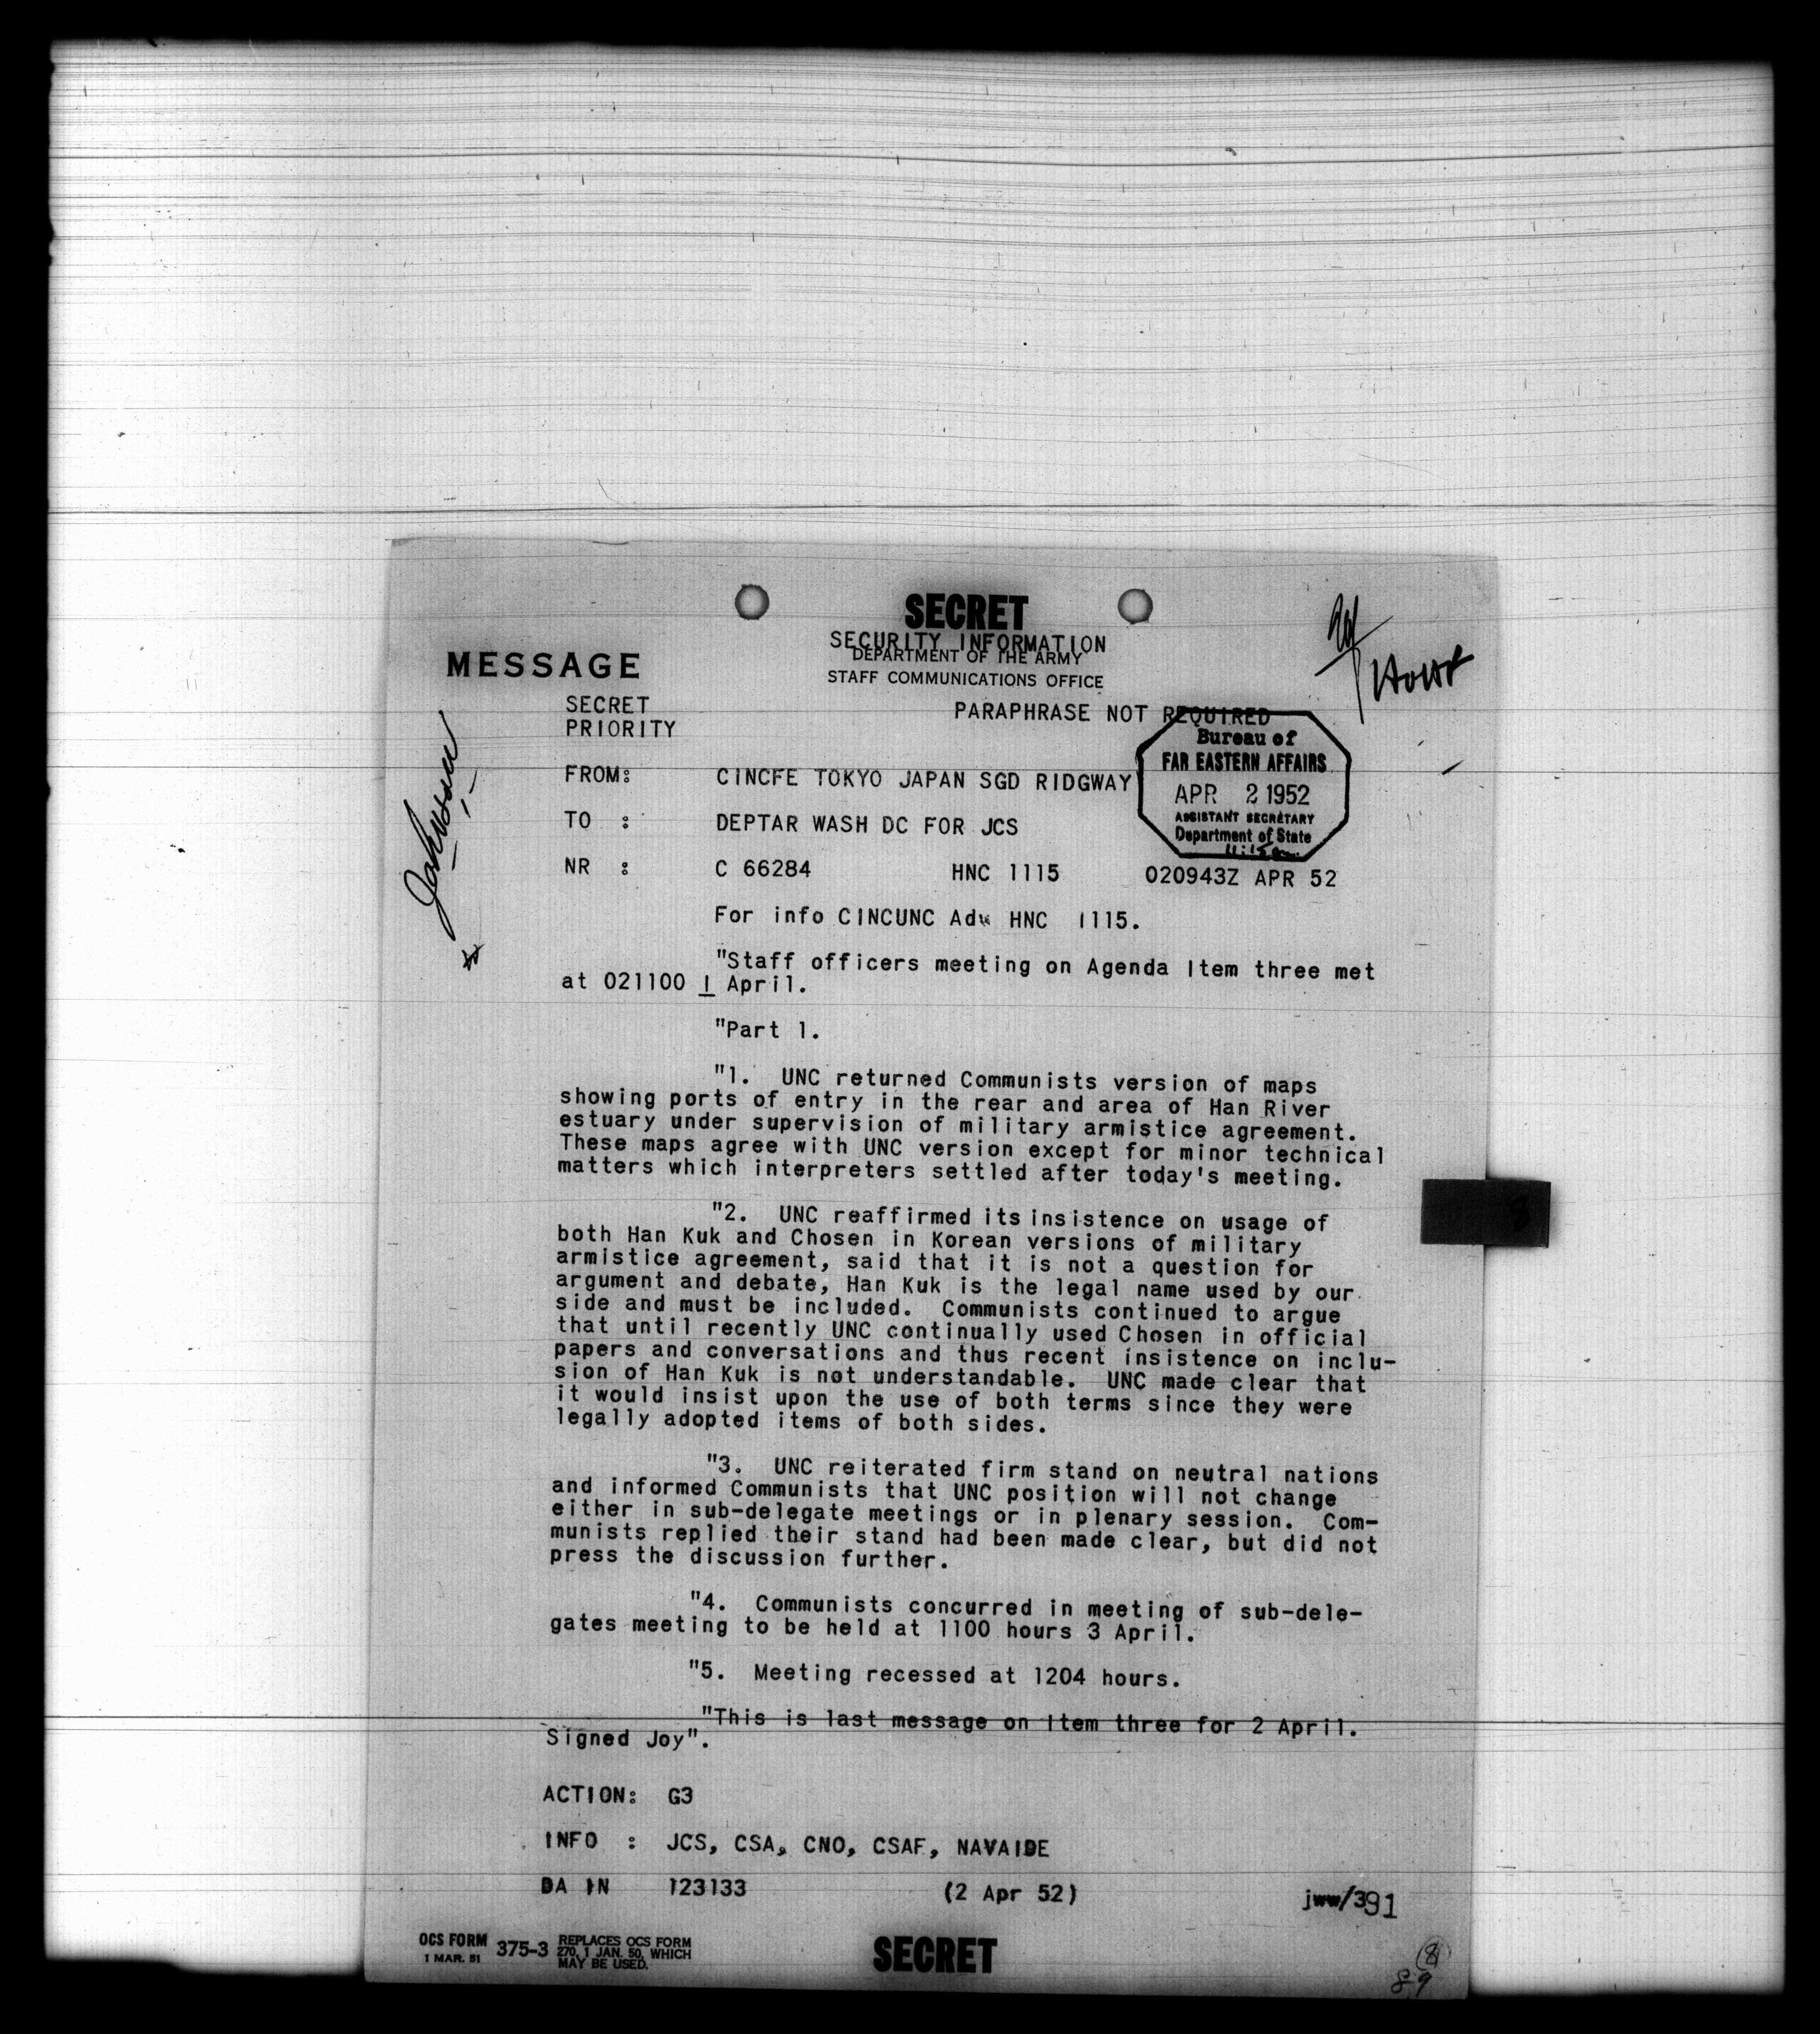 SECRET
SECURITY INFORMATION
DEPARTMENT OF THE ARMY
STAFF COMMUNICATIONS OFFICE
MESSAGE
SECRET
PRIORITY
PARAPHRASE NOT REQUIRED
Bureau of
FAR EASTERN AFFAIRS
APR 2 1952
ASSISTANT SECRETARY
Department of State
Johnson
FROM: CINCFE TOKYO JAPAN SGD RIDGWAY
TO : DEPTAR WASH DC FOR JCS
NR : C 66284 HNC 1115 020943Z APR 52
For info CINCUNC Adv HNC 1115.
"Staff officers meeting on Agenda Item three met
at 021100 I April.
"Part 1.
"1. UNC returned Communists version of maps
showing ports of entry in the rear and area of Han River
estuary under supervision of military armistice agreement.
These maps agree with UNC version except for minor technical
matters which interpreters settled after today's meeting.
"2. UNC reaffirmed its insistence on usage of
both Han Kuk and Chosen in Korean versions of military
armistice agreement, said that it is not a question for
argument and debate, Han Kuk is the legal name used by our
side and must be included. Communists continued to argue
that until recently UNC continually used Chosen in official
papers and conversations and thus recent insistence on inclu-
sion of Han Kuk is not understandable. UNC made clear that
it would insist upon the use of both terms since they were
legally adopted items of both sides.
"3. UNC reiterated firm stand on neutral nations
and informed Communists that UNC position will not change
either in sub-delegate meetings or in plenary session. Com-
munists replied their stand had been made clear, but did not
press the discussion further.
"4. Communists concurred in meeting of sub-dele-
gates meeting to be held at 1100 hours 3 April.
"5. Meeting recessed at 1204 hours.
"This is last message on Item three for 2 April.
Signed Joy".
ACTION: G3
INFO : JCS, CSA, CNO, CSAF, NAVAIDE
DA IN 123133 (2 Apr 52) jww/391
OCS FORM 375-3 REPLACES OCS FORM
1 MAR. 51 270, 1 JAN. 50, WHICH
MAY BE USED.
SECRET
8
89
8